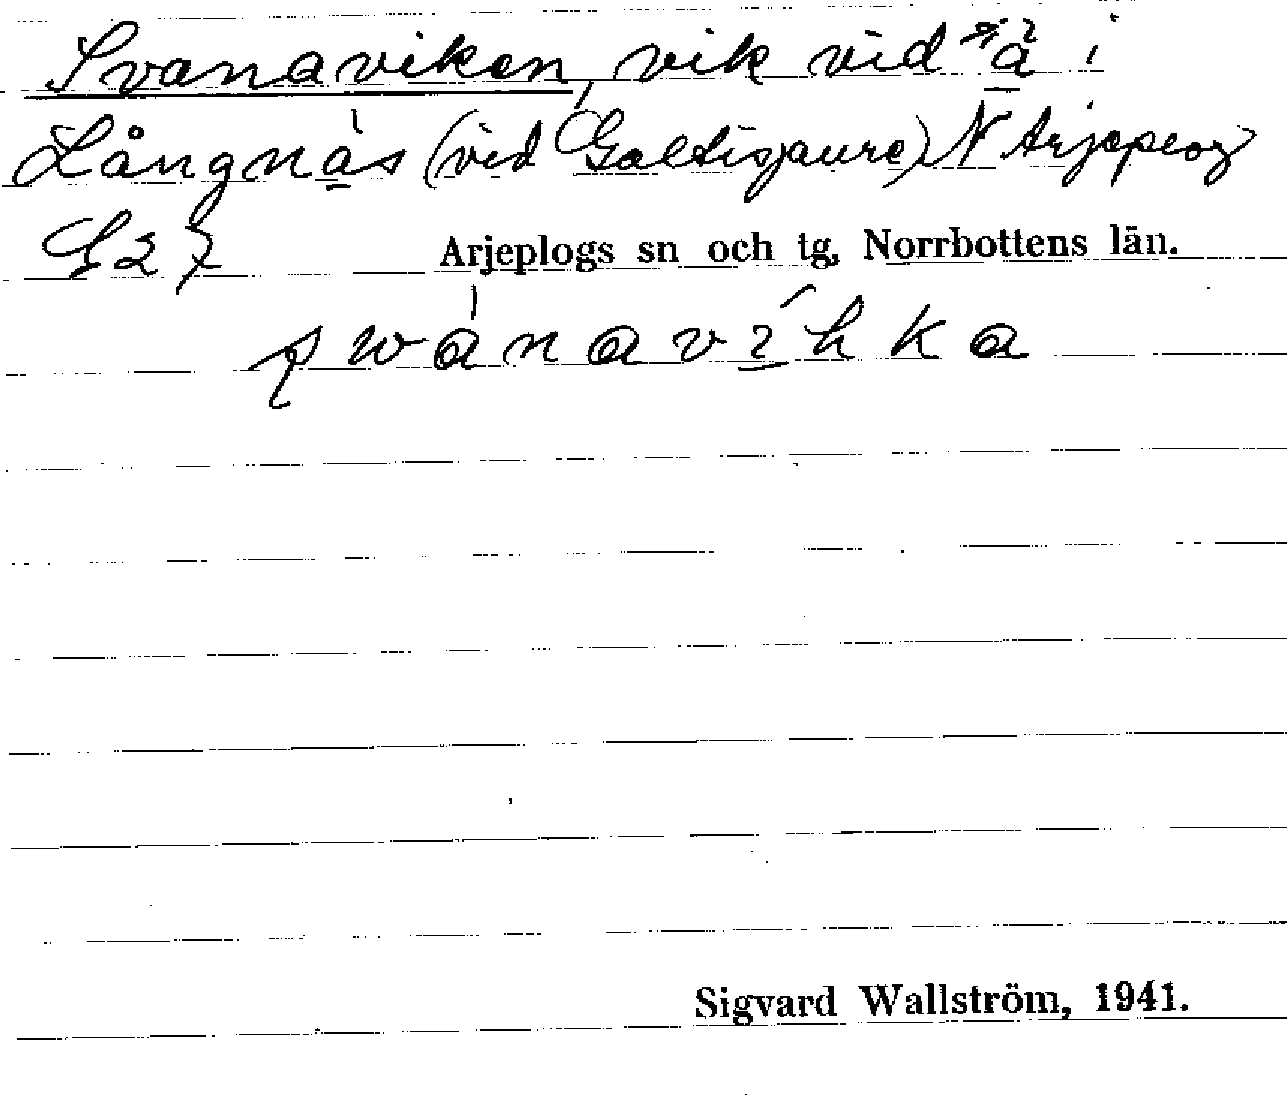 Svanaviken, vik vid å i
Långnäs (vid Galtisjaure) N Arjeplog
G27
Arjeplogs sn och tg, Norrbottens län.
swánavihka
Sigvard Wallström, 1941.